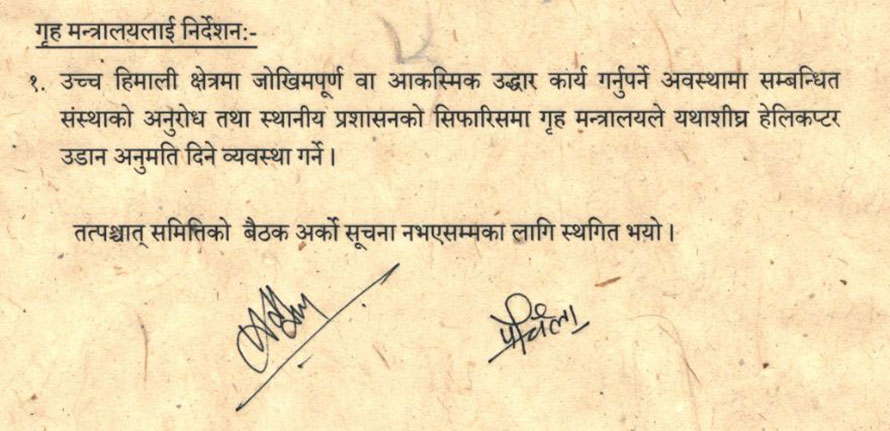 गृह मन्त्रालयलाई निर्देशन:-
१. उच्च हिमाली क्षेत्रमा जोखिमपूर्ण वा आकस्मिक उद्धार कार्य गर्नुपर्ने अवस्थामा सम्बन्धित
संस्थाको अनुरोध तथा स्थानीय प्रशासनको सिफारिसमा गृह मन्त्रालयले यथाशीघ्र हेलिकप्टर
उडान अनुमति दिने व्यवस्था गर्ने।
तत्पश्चात् समितिको बैठक अर्को सूचना नभएसम्मका लागि स्थगित भयो।